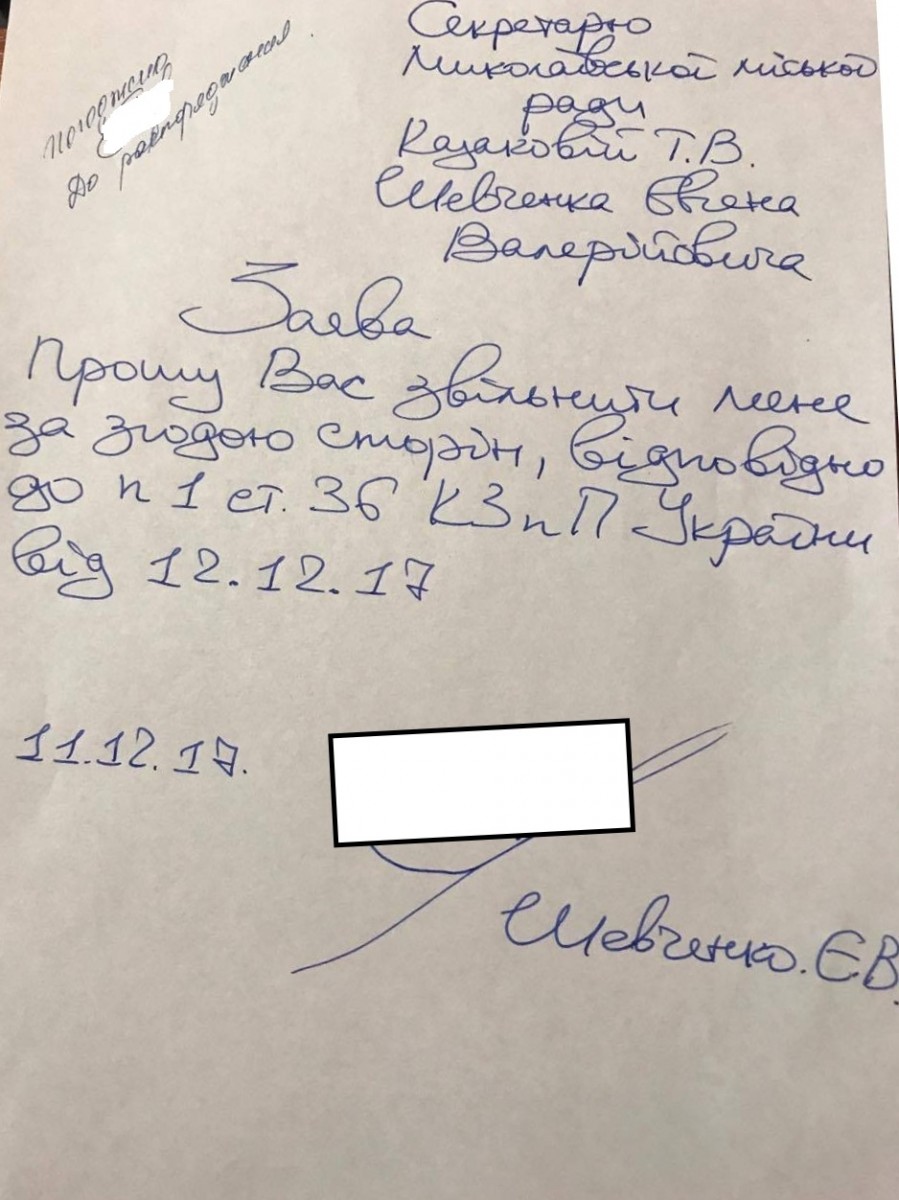 Погоджено
До розпорядження.
Секретарю
Миколаївської міської
ради
Казаковій Т.В.
Шевченка Євгена
Валерійовича
Заява
Прошу Вас звільнити мене
за згодою сторін, відповідно
до п 1 ст. 36 КЗпП України
від 12.12.17
11.12.17.
Шевченко. ЄВ.